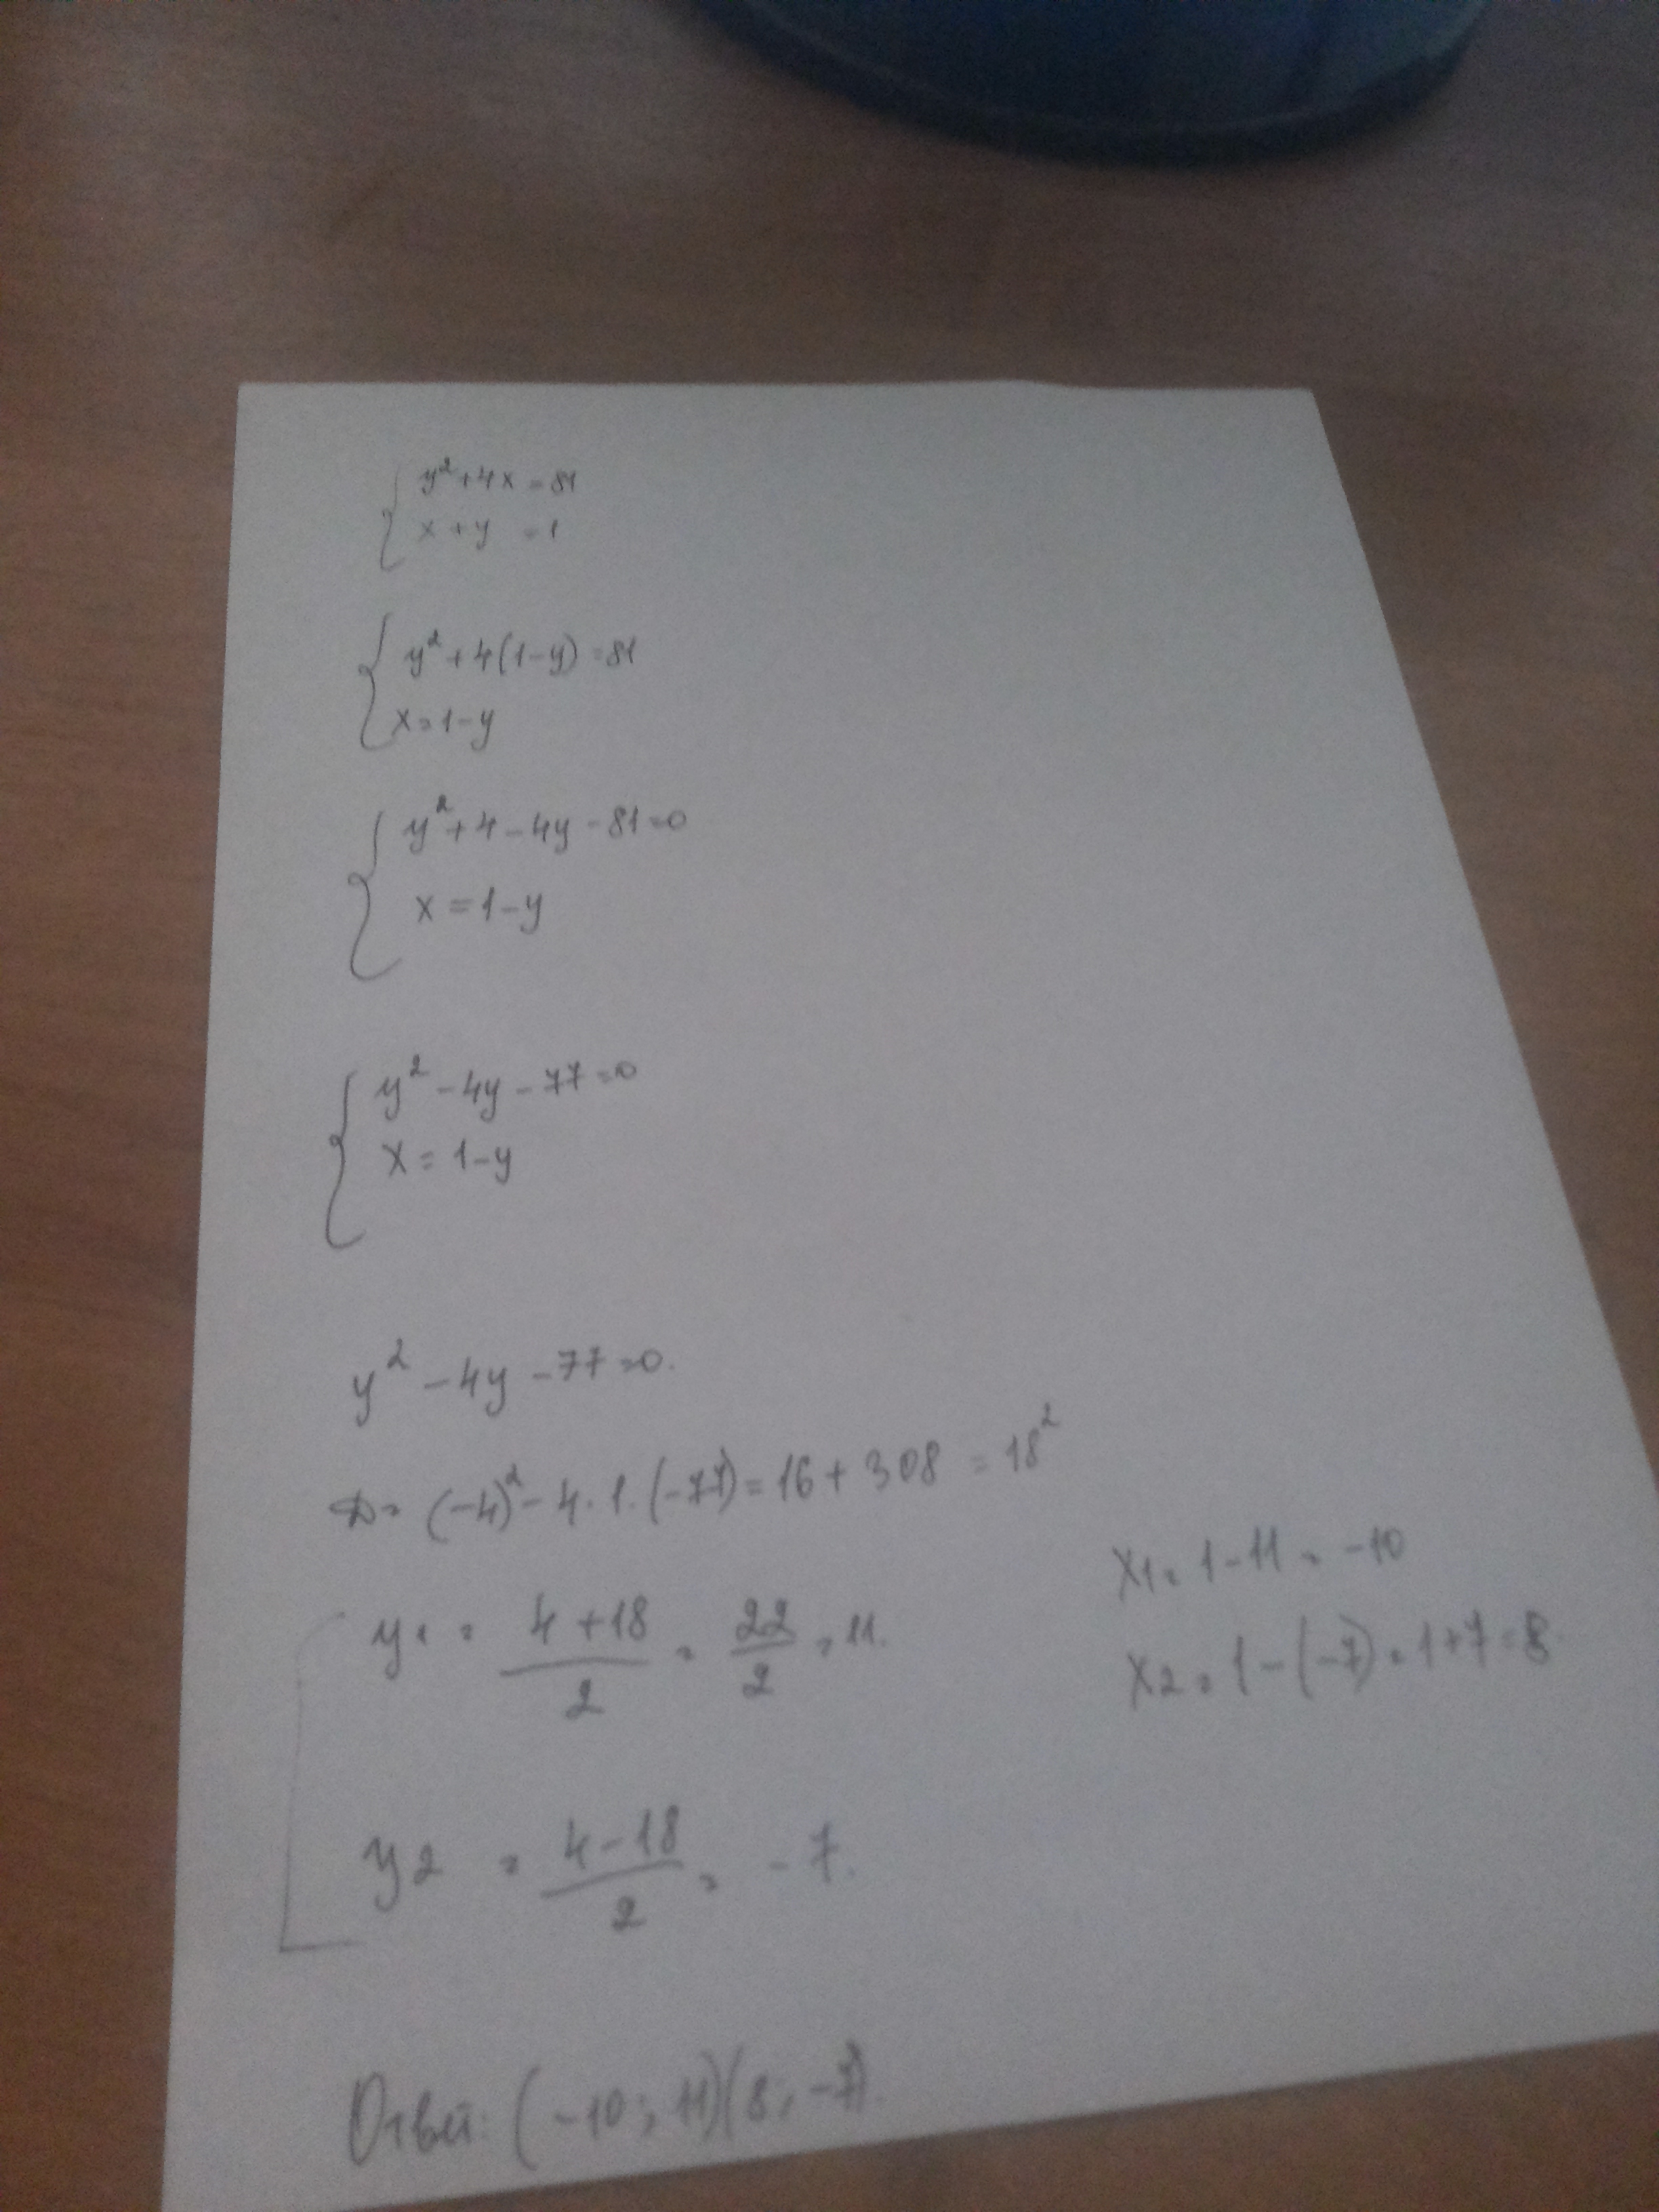 y² + 4x = 81
x + y = 1
y² + 4(1 - y) = 81
x = 1 - y
y² + 4 - 4y - 81 = 0
x = 1 - y
y² - 4y - 77 = 0
x = 1 - y
y² - 4y - 77 = 0.
D = (-4)² - 4 · 1 · (-77) = 16 + 308 = 18²
y1 = (4 + 18)/2 = 22/2 = 11.
x1 = 1 - 11 = -10
x2 = 1 - (-7) = 1 + 7 = 8.
y2 = (4 - 18)/2 = -7.
Ответ: (-10; 11)(8; -7).